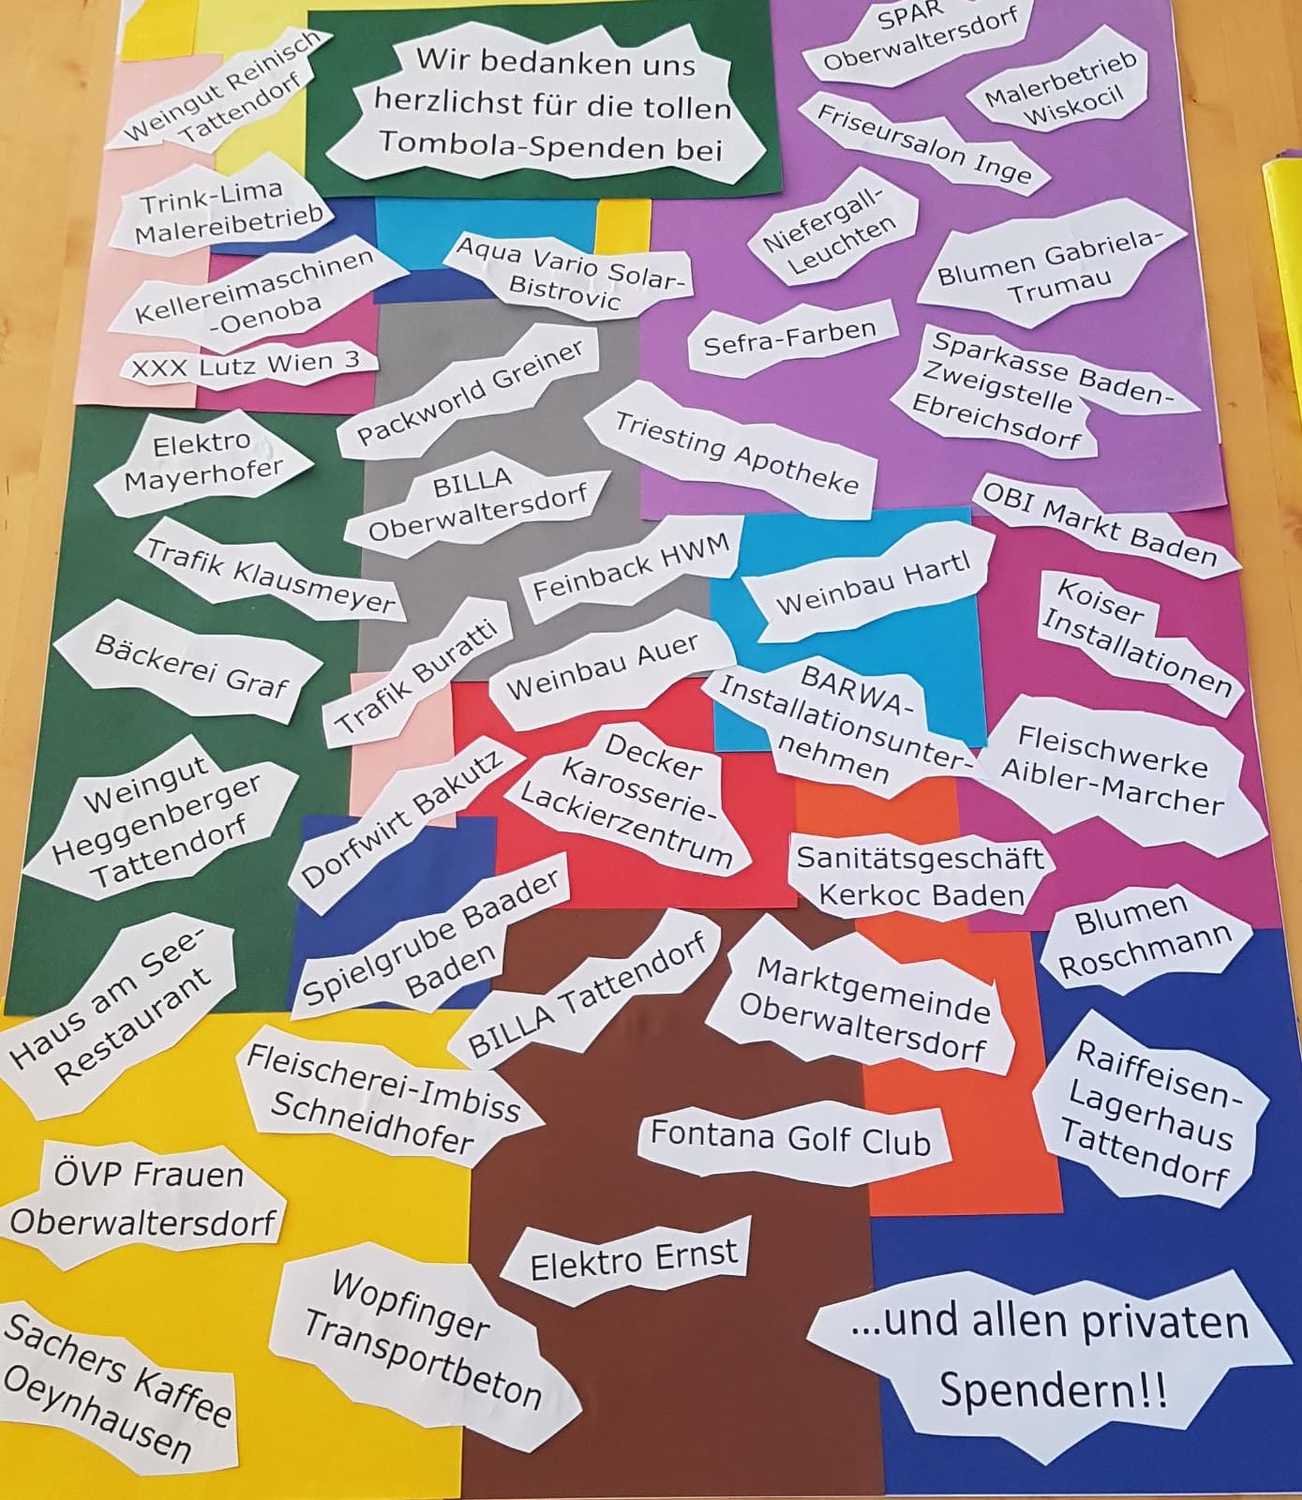 Wir bedanken uns
herzlichst für die tollen
Tombola-Spenden bei
Weingut Reinisch
Tattendorf
SPAR
Oberwaltersdorf
Malerbetrieb
Wiskocil
Friseursalon Inge
Trink-Lima
Malereibetrieb
Niefergall-
Leuchten
Blumen Gabriela-
Trumau
Kellereimaschinen
-Oenoba
Aqua Vario Solar-
Bistrovic
Sefra-Farben
XXX Lutz Wien 3
Packworld Greiner
Sparkasse Baden-
Zweigstelle
Ebreichsdorf
Elektro
Mayerhofer
Triesting Apotheke
BILLA
Oberwaltersdorf
OBI Markt Baden
Trafik Klausmeyer
Feinback HWM
Weinbau Hartl
Koiser
Installationen
Bäckerei Graf
Trafik Buratti
Weinbau Auer
BARWA-
Installationsunter-
nehmen
Fleischwerke
Aibler-Marcher
Weingut
Heggenberger
Tattendorf
Dorfwirt Bakutz
Decker
Karosserie-
Lackierzentrum
Sanitätsgeschäft
Kerkoc Baden
Blumen
Roschmann
Haus am See-
Restaurant
Spielgrube Baader
Baden
BILLA Tattendorf
Marktgemeinde
Oberwaltersdorf
Raiffeisen-
Lagerhaus
Tattendorf
Fleischerei-Imbiss
Schneidhofer
Fontana Golf Club
ÖVP Frauen
Oberwaltersdorf
Elektro Ernst
Wopfinger
Transportbeton
Sachers Kaffee
Oeynhausen
...und allen privaten
Spendern!!